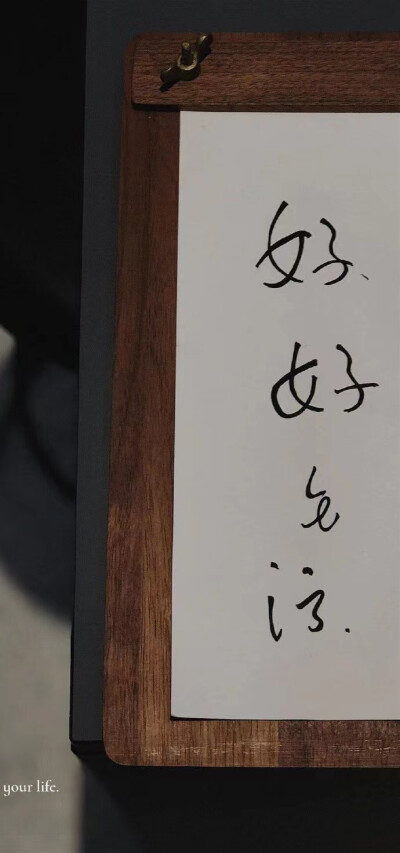 好好生活.
your life.